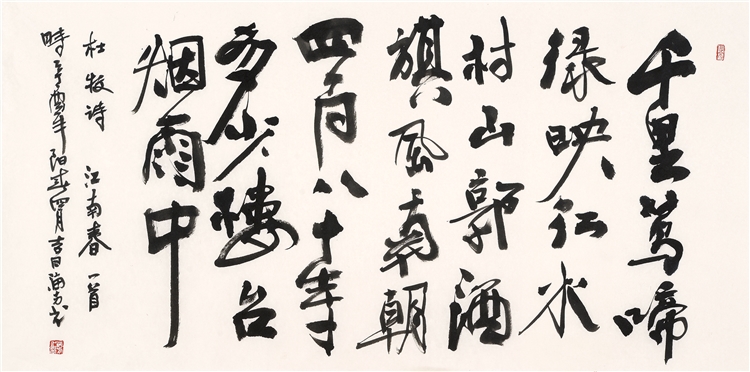 千里莺啼
绿映红水
村山郭酒
旗风南朝
四百八十寺
多少楼台
烟雨中
杜牧诗 江南春一首
時辛酉年阳春四月吉日